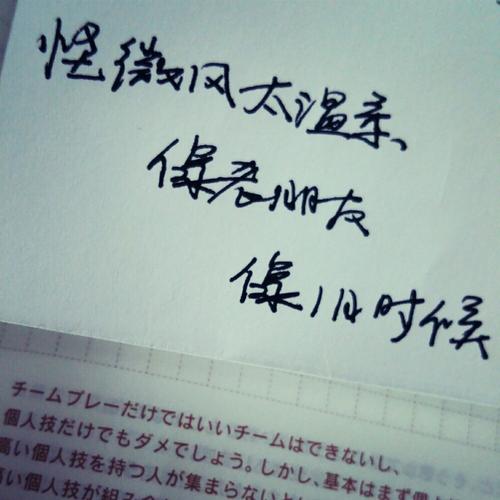 怪微风太温柔、
像老朋友
像旧时候
チームプレーだけではいいチームはできないし、
個人技だけでもダメでしょう。しかし、基本はまず個
高い個人技を持つ人が集まらない